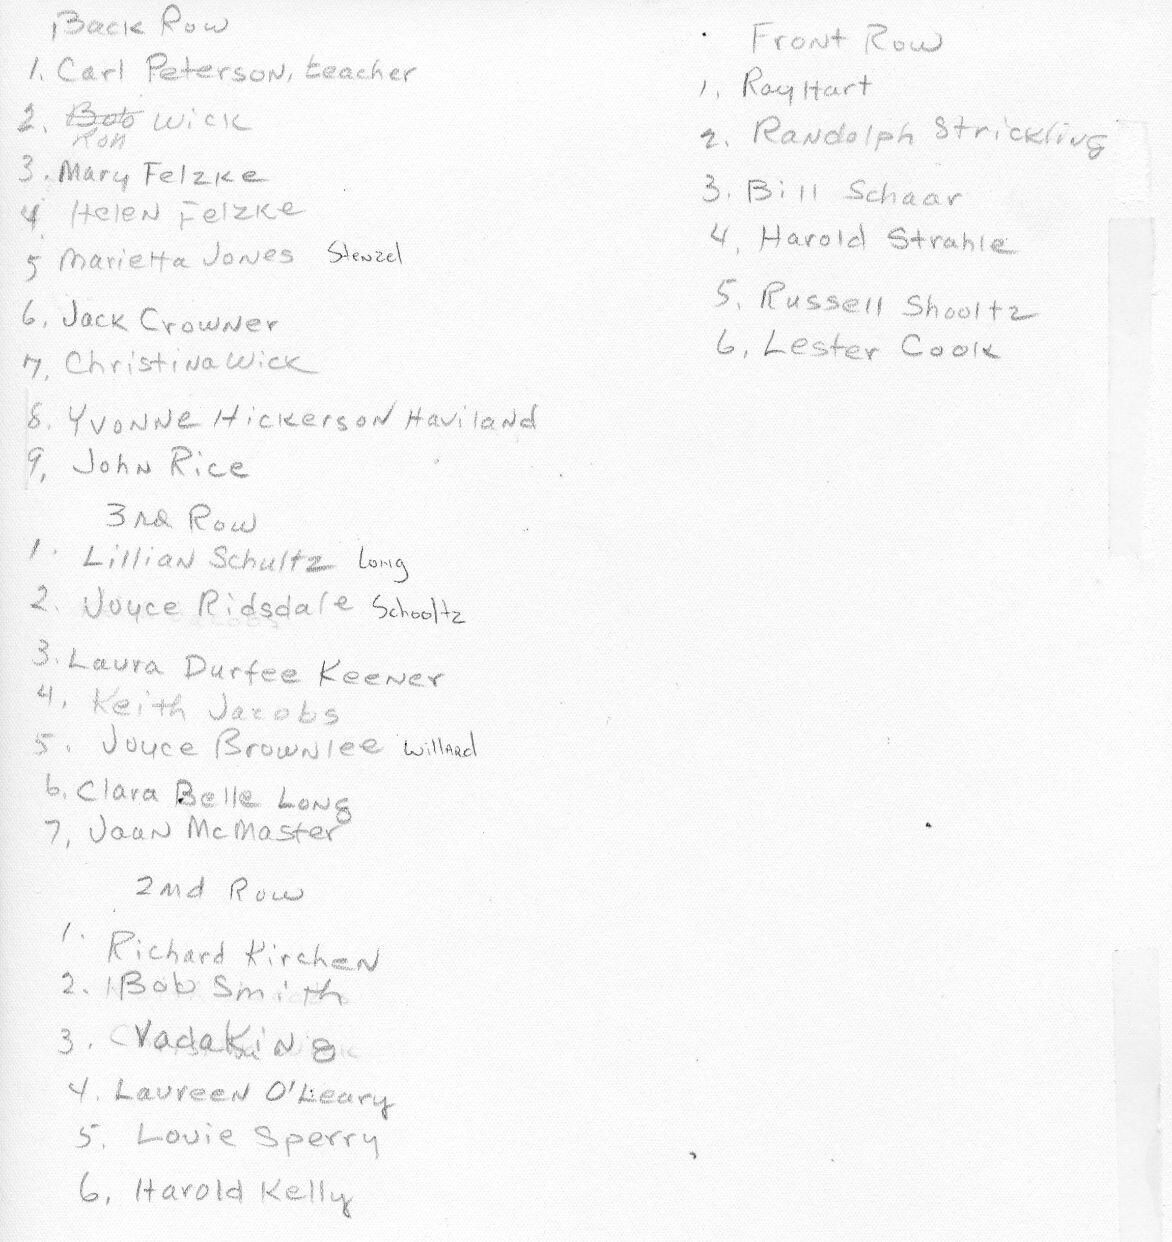 Back Row
1. Carl Peterson, teacher
2. Bob Wick
Ron
3. Mary Felzke
4. Helen Felzke
5 Marietta Jones Stenzel
6. Jack Crowner
7. Christina Wick
8. Yvonne Hickerson Haviland
9. John Rice
3rd Row
1. Lillian Schultz Long
2. Joyce Ridsdale Schooltz
3. Laura Durfee Keener
4. Keith Jacobs
5. Joyce Brownlee Willard
6. Clara Belle Long
7. Joan McMaster
2nd Row
1. Richard Kirchen
2. Bob Smith
3. Vada King
4. Laureen O'Leary
5. Louie Sperry
6. Harold Kelly
Front Row
1. Roy Hart
2. Randolph Strickling
3. Bill Schaar
4. Harold Strahle
5. Russell Shooltz
6. Lester Cook